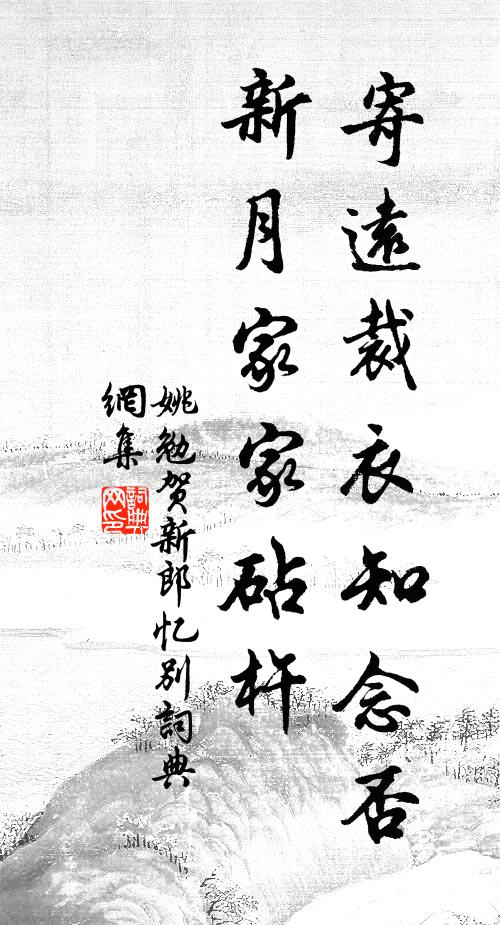 寄遠裁衣知念否
新月家家砧杵
姚勉贺新郎忆别詞典
網集
詞典网印